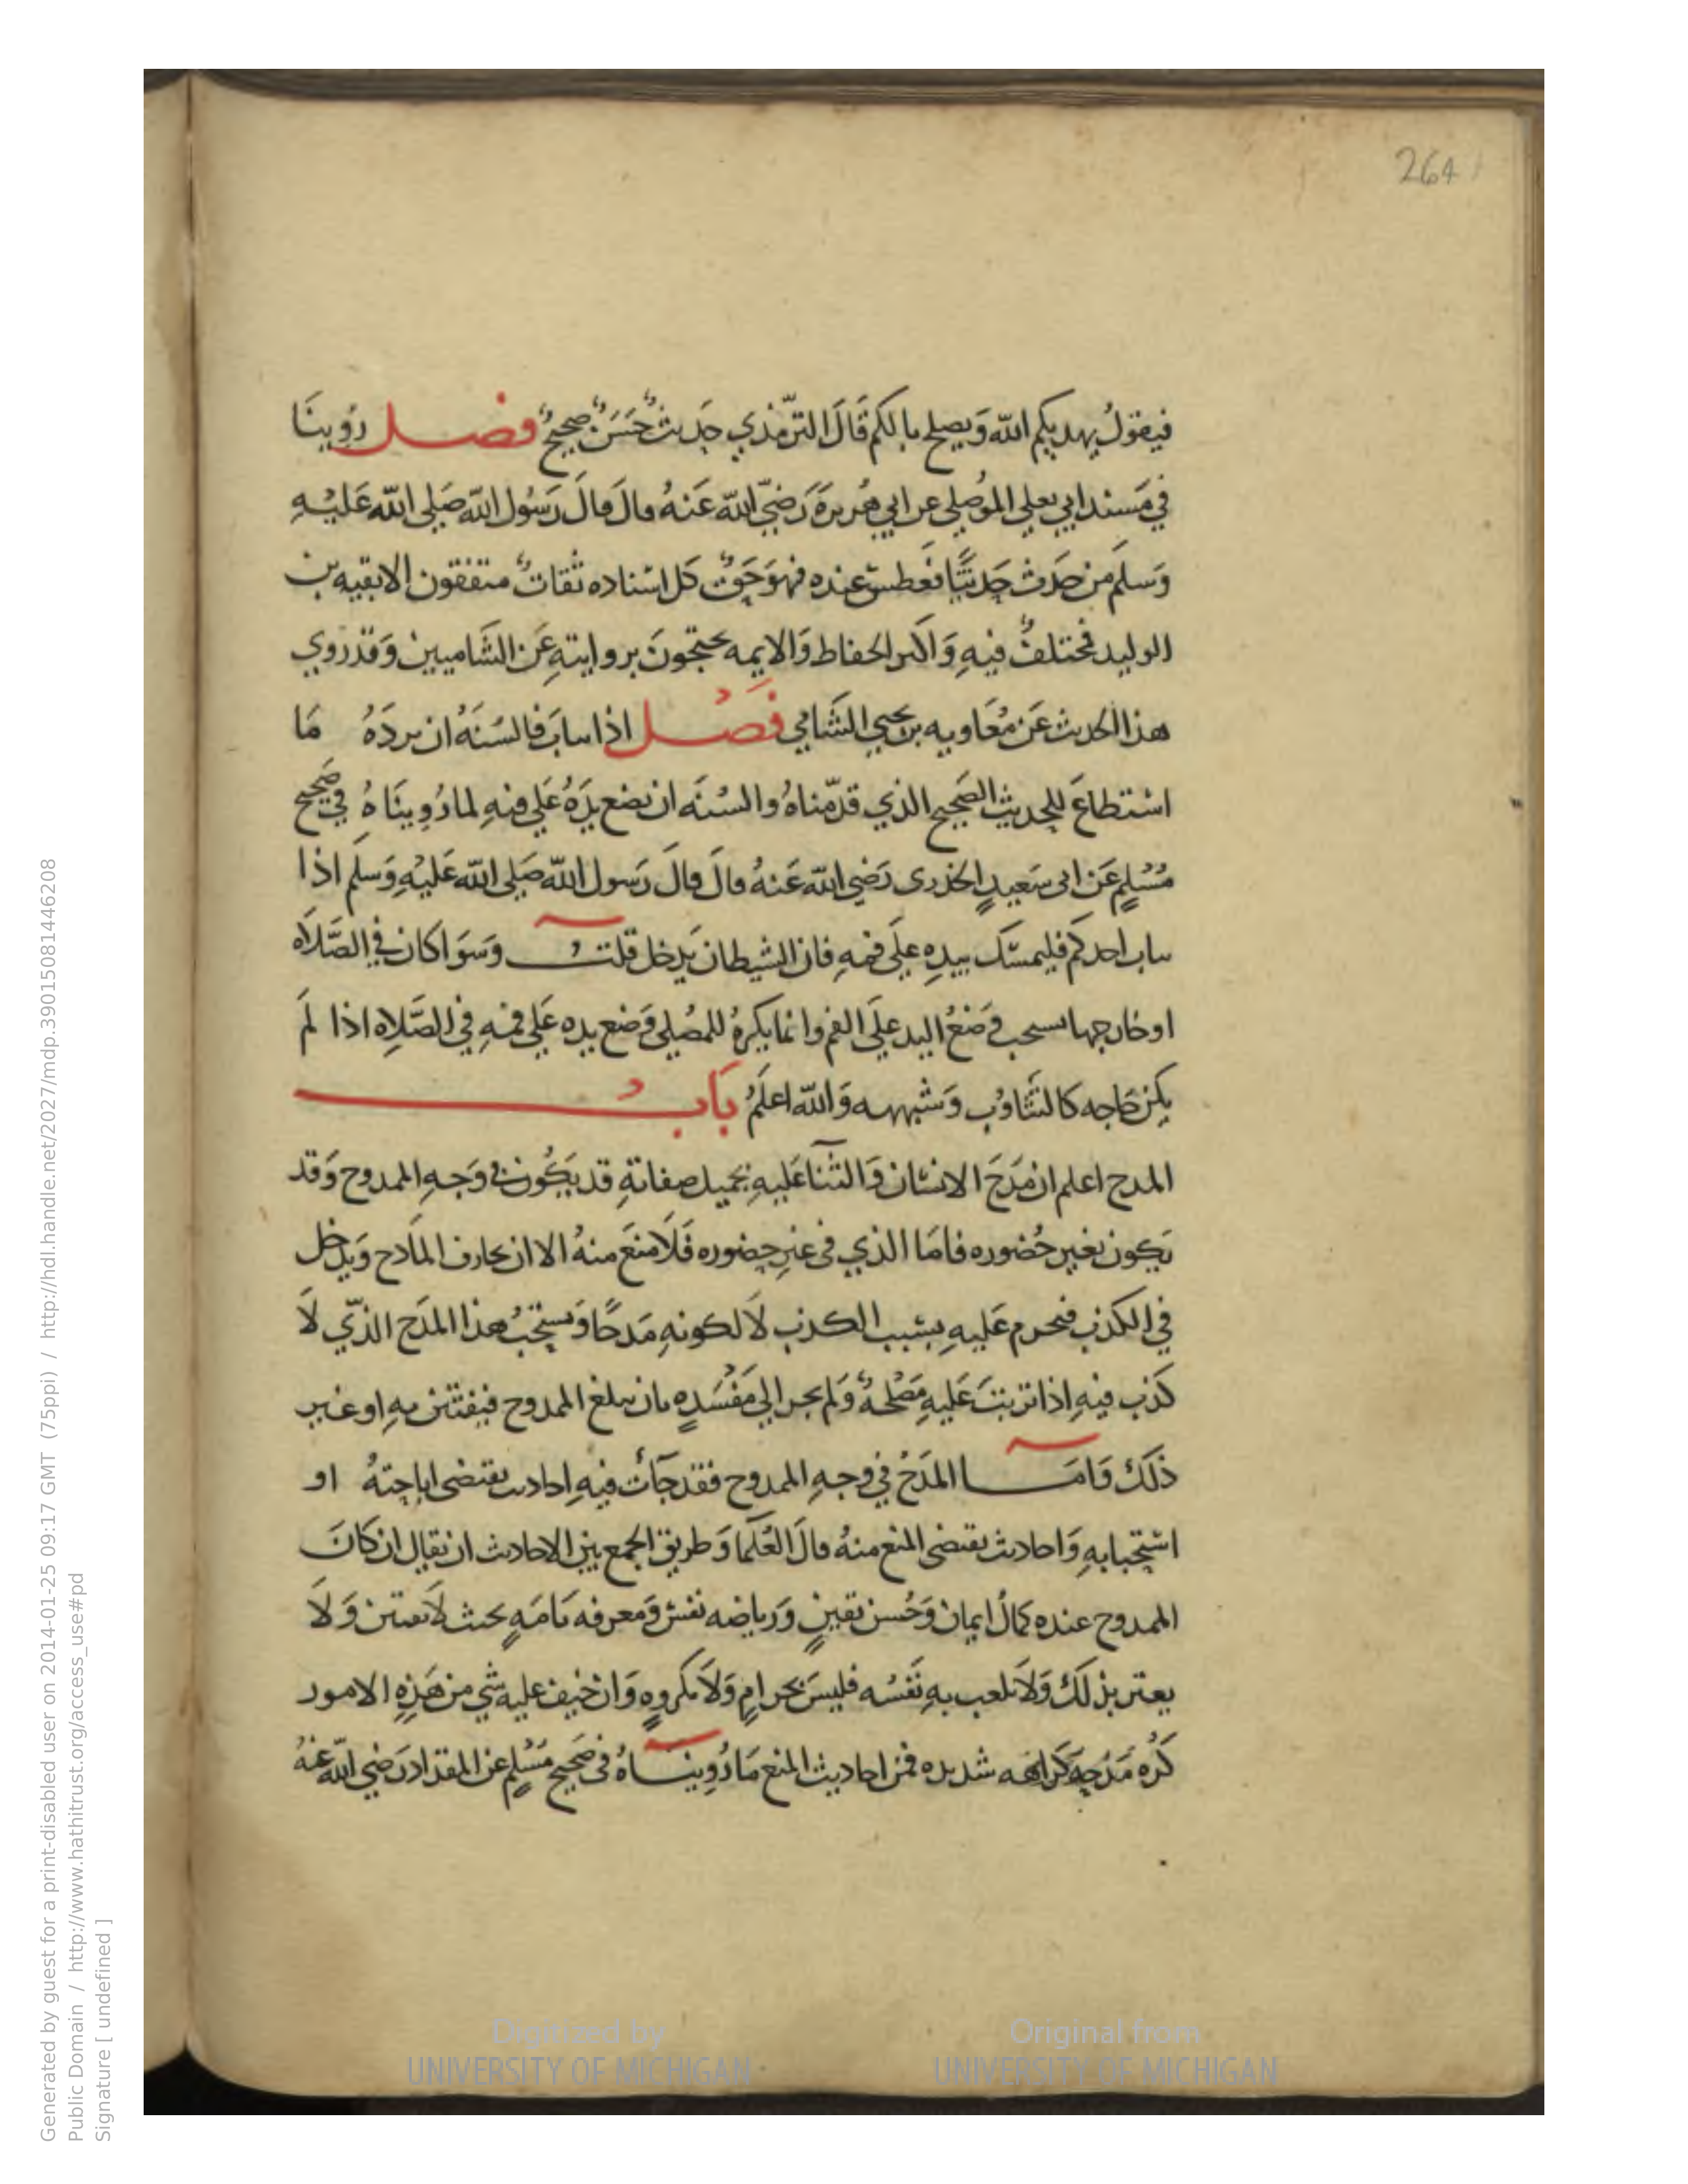 264
فيقولُ يهديكم الله وَيصلح بالكم قَالَ الترّمذي حَديثٌ حَسَنٌ صحيحٌ فصل رُوِينَا
في مَسند ابي يعلي الموُصلي عن ابي هُريرةَ رَضيّ الله عَنهُ قالَ قالَ رَسُول الله صَلى الله عَليْهِ
وَسلم من حَدث حَديثًا فعَطس عنده فهوَ حَقٌ كل اسْناده ثقاتٌ متفقون الا بقيه بن
الوليد فمختلفٌ فيهِ وَاكثر الحفاظ وَالايمه يحتجونَ بروايتهِ عَن الشَاميين وَقد رَوي
هذا الحديث عَن مُعَاويه بن يحيي الشَامي فصْل اذا تثاب فالسُنَهُ ان يردَهُ مَا
اسْتطاعَ للحديث الصَحيح الذي قدّمناهُ والسُنَه ان يضع يدَهُ عَلي فيهِ لما رُوِينَاهُ في صَحيح
مُسْلمٍ عَن ابى سَعيدٍ الخدرى رَضي الله عَنهُ قالَ قالَ رَسول الله صَلى الله عَليْهِ وَسلم اذا
تثاب احدكم فليمسَك بيدِهِ عَلَى فمهِ فان الشيطان يَدخل قلتُ وَسَوَا كان في الصَلاَه
او خارجها يستحب وَضعُ اليد علَى الفم وانما يكرهُ للمصُلي وَضع يده عَلي فمهِ في الصَلاِه اذا لمَ
يكن حَاجه كالتثَاوُب وَشبهه وَالله اعلَمُ بَابُ
المدح اعلم ان مَدَحَ الانسَان وَالثنآ عَليهِ بجميل صفاتهِ قد يَكُون في وَجهِ الممدوح وَقد
يَكون بغير حُضوره فامَا الذي فى غير حضوره فَلاَ منعَ منهُ الا ان يجازف المَادح وَيدخل
في الكذب فيحرم عَليهِ بسَبب الكذب لاَ لكونهِ مَدحًا وَيستحَبُ هذا المدَح الذّي لاَ
كَذب فيهِ اذا ترتبَ عَليهِ مَصْلحهٌ وَلم يجر الي مَفْسَدهٍ بان يبلغ الممدوح فيفتتن بهِ او غير
ذلَكَ وَامَا المدَحُ في وجهِ الممدوح فقد جَآت فيهِ احاديث تقتضى اباحتهُ او
اسْتحبابهِ وَاحاديث تقتضى المنع منهُ قالَ العُلَما وَطريق الجمع بين الاحاديث ان يقال ان كانَ
الممدوح عنده كمالُ ايمان وَحُسن يقينٍ وَرياضه نفسٍ وَمعرفه تامَهٍ بحيث لاَ يفتتن وَلاَ
يغتر بذلَك وَلاَ تلعب بهِ نَفسُه فليسَ بحرامٍ وَلاَ مكروهٍ وَان خيف عليه شي من هَذِهِ الامور
كُرُه مَدْحِهِ كَراهه شديده فمن احاديث المنع مَا رُوِينَاهُ فى صَحيح مُسْلمٍ عن المقداد رَضي الله عنهُ
Digitized by
UNIVERSITY OF MICHIGAN
Original from
UNIVERSITY OF MICHIGAN
Generated by guest for a print-disabled user on 2014-01-25 09:17 GMT (75ppi) / http://hdl.handle.net/2027/mdp.39015081446208
Public Domain / http://www.hathitrust.org/access_use#pd
Signature [ undefined ]